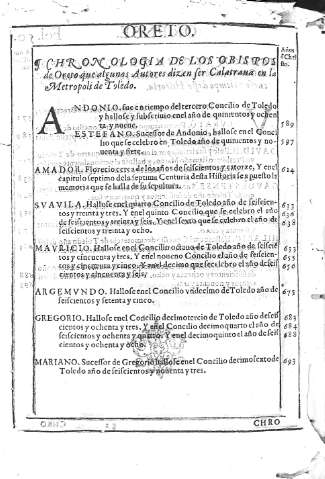 ORETO.
¶ CHRONOLOGIA DE LOS OBISPOS
de Oreto que algunos Autores dizen ser Calatraua en la
Metropoli de Toledo.
Años
d Chri
sto.
ANDONIO. fue en tiempo del tercero Concilio de Toledo
y hallose y subscriuio en el año de quinientos y ochen
ta y nueue.
589
ESTEFANO. Sucessor de Andonio, hallose en el Conci
lio que se celebro en Toledo año de quinientos y no-
uenta y siete.
597
AMADOR. Florecio cerca de los años de seiscientos y catorze, Y en el
capitulo septimo de la septima Centuria desta Historia se a puesto la
memoria que se halla de su sepultura.
614
SVAVILA. Hallose en el quarto Concilio de Toledo año de seiscien-
tos y treinta y tres. Y en el quinto Concilio que se celebro el año
de seiscientos y treinta y seis. Y en el sexto que se celebro el año de
seiscientos y treinta y ocho.
633
636
638
MAVRICIO. Hallose en el Concilio octauo de Toledo año de seiscié
tos y cincuenta y tres. Y en el noueno Concilio el año de seiscien-
tos y cincuenta y cinco. Y en el decimo que se celebro el año de seis
cientos y cincuenta y seis.
653
655
656
ARGEMVNDO. Hallose en el Concilio vndecimo de Toledo año de
seiscientos y setenta y cinco.
675
GREGORIO. Hallose en el Concilio decimotercio de Toledo año de seis
cientos y ochenta y tres. Y en el Concilio decimoquarto el año de
seiscientos y ochenta y quatro. Y en el decimoquinto el año de seis
cientos y ochenta y ocho.
683
684
688
MARIANO. Sucessor de Gregorio hallose en el Concilio decimosexto de
Toledo año de seiscientos y nouenta y tres.
693
CHRO